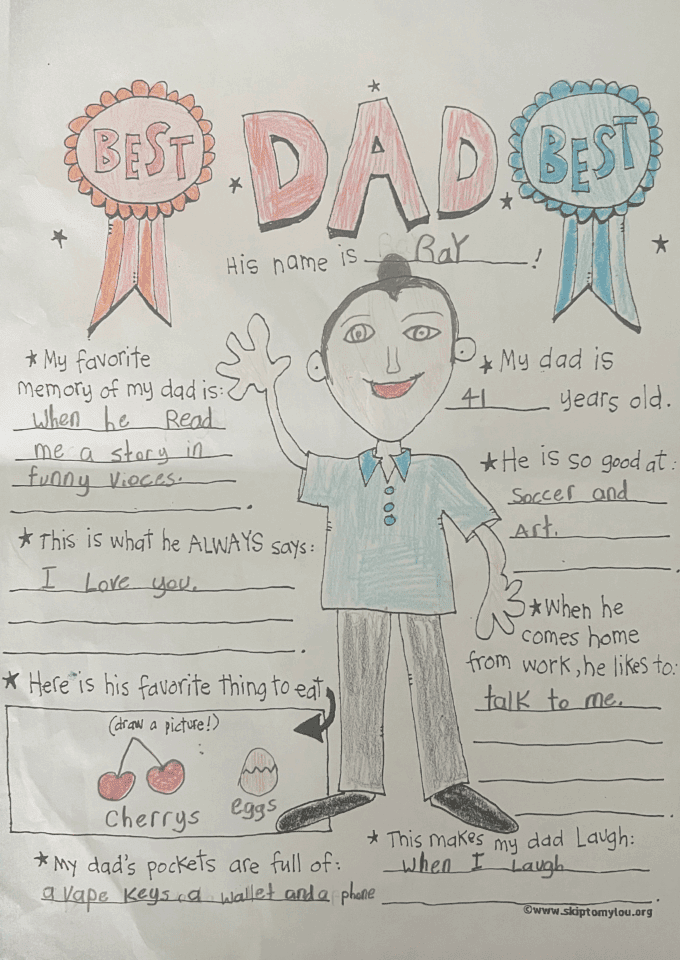 BEST
DAD
BEST
His name is RaY !
★ My favorite
memory of my dad is:
when he Read
me a story in
funny vioces.
★ My dad is
41 years old.
★ He is so good at:
Soccer and
Art.
★ This is what he ALWAYS says:
I Love you.
★ When he
comes home
from work, he likes to:
talk to me.
★ Here is his favorite thing to eat
(draw a picture!)
Cherrys
eggs
★ This makes my dad Laugh:
when I Laugh
★ My dad's pockets are full of:
a vape keys, a wallet and a phone
©www.skiptomylou.org